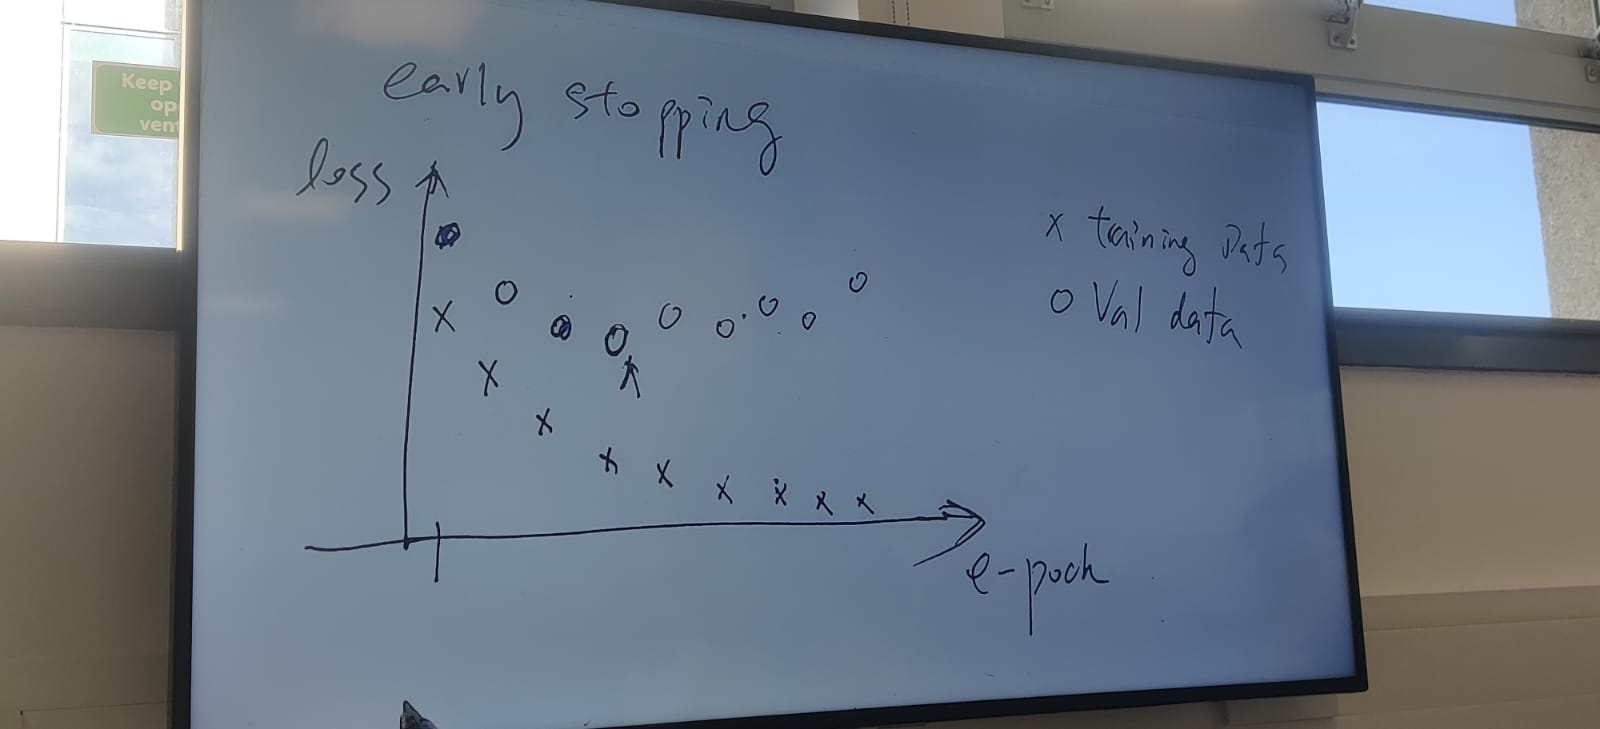 Keep
op
vent
early stopping
loss
x training Data
o Val data
e-poch